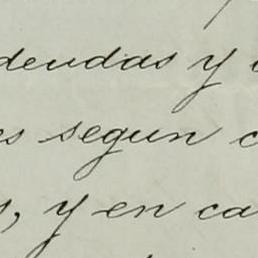 deudas y
es segun c
s, y en ca